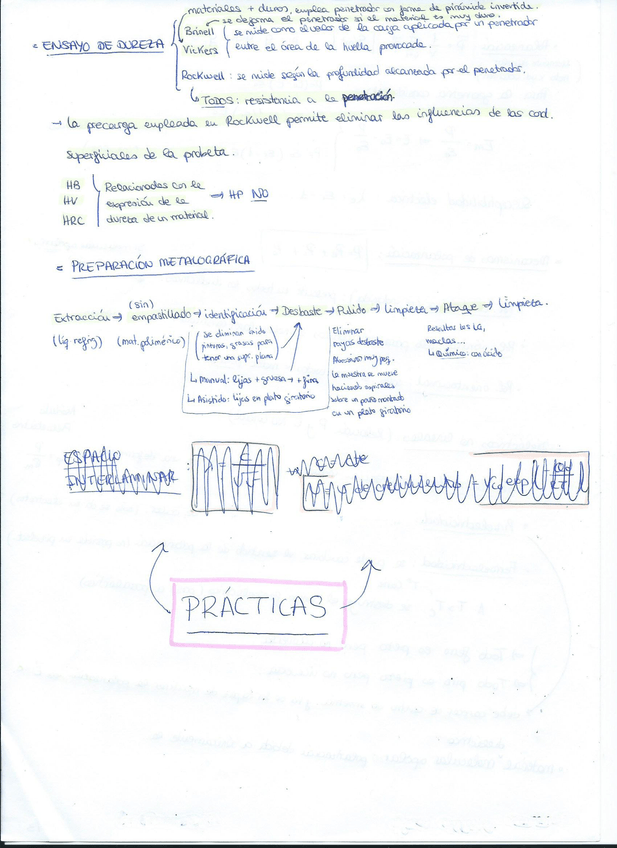 materiales + duros, emplea penetrador en forma de pirámide invertida.
se deforma el penetrador si el material es muy duro.
- ENSAYO DE DUREZA
Brinell
Vickers
se mide como el valor de la carga aplicada por un penetrador
entre el área de la huella provocada.
Rockwell: se mide según la profundidad alcanzada por el penetrador.
↳ TODOS: resistencia a la penetración.
→ La precarga empleada en Rockwell permite eliminar las influencias de las cond.
superficiales de la probeta.
HB
HV
HRC
Relacionadas con la
expresión de la
dureza de un material.
→ HP NO
- PREPARACIÓN METALOGRÁFICA
(sin)
Extracción → empastillado → identificación → Desbaste → Pulido → limpieza → Ataque → limpieza.
(líq refrig)
(mat. polimérico)
(se eliminan óxido
pinturas, grasas para
tener una sup. plana)
↳ Manual: lijas + gruesa → + fina
↳ Asistido: lijas en plato giratorio
Eliminar
rayas desbaste
Abrasivos muy peq.
la muestra se mueve
haciendo espirales
sobre un paño montado
en un plato giratorio
Resaltar los
maclas...
↳ Químico: con ácido
ESPACIO
INTERLAMINAR:
PRÁCTICAS